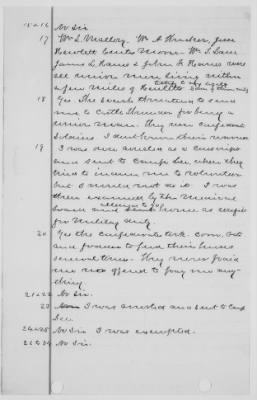 15 & 16 No Sir
17 Wm L. Mallory. Wm A. Jim
Hewlett Moore Wm T.
James L. Haines & John F. Haines were
all union men living within
a few miles of
18 Yes. The to send
me to Castle Thunder for being a
union man. They were Confederate
Soldiers I dont know their names
19 I was over arrested as a conscript
and sent to Camp Lee, where they
tried to me to volunteer
but I would not do it. I was
then examined by the Medical
home as unfit
for Military duty.
20 Yes the Confederates took corn, Oats
and fodder to feed their horses
several times. They never paid
me nor offered to pay me any-
thing.
21 & 22 No Sir.
23 I was arrested and sent to Camp
Lee.
24 & 25 No Sir I was exempted.
No Sir.